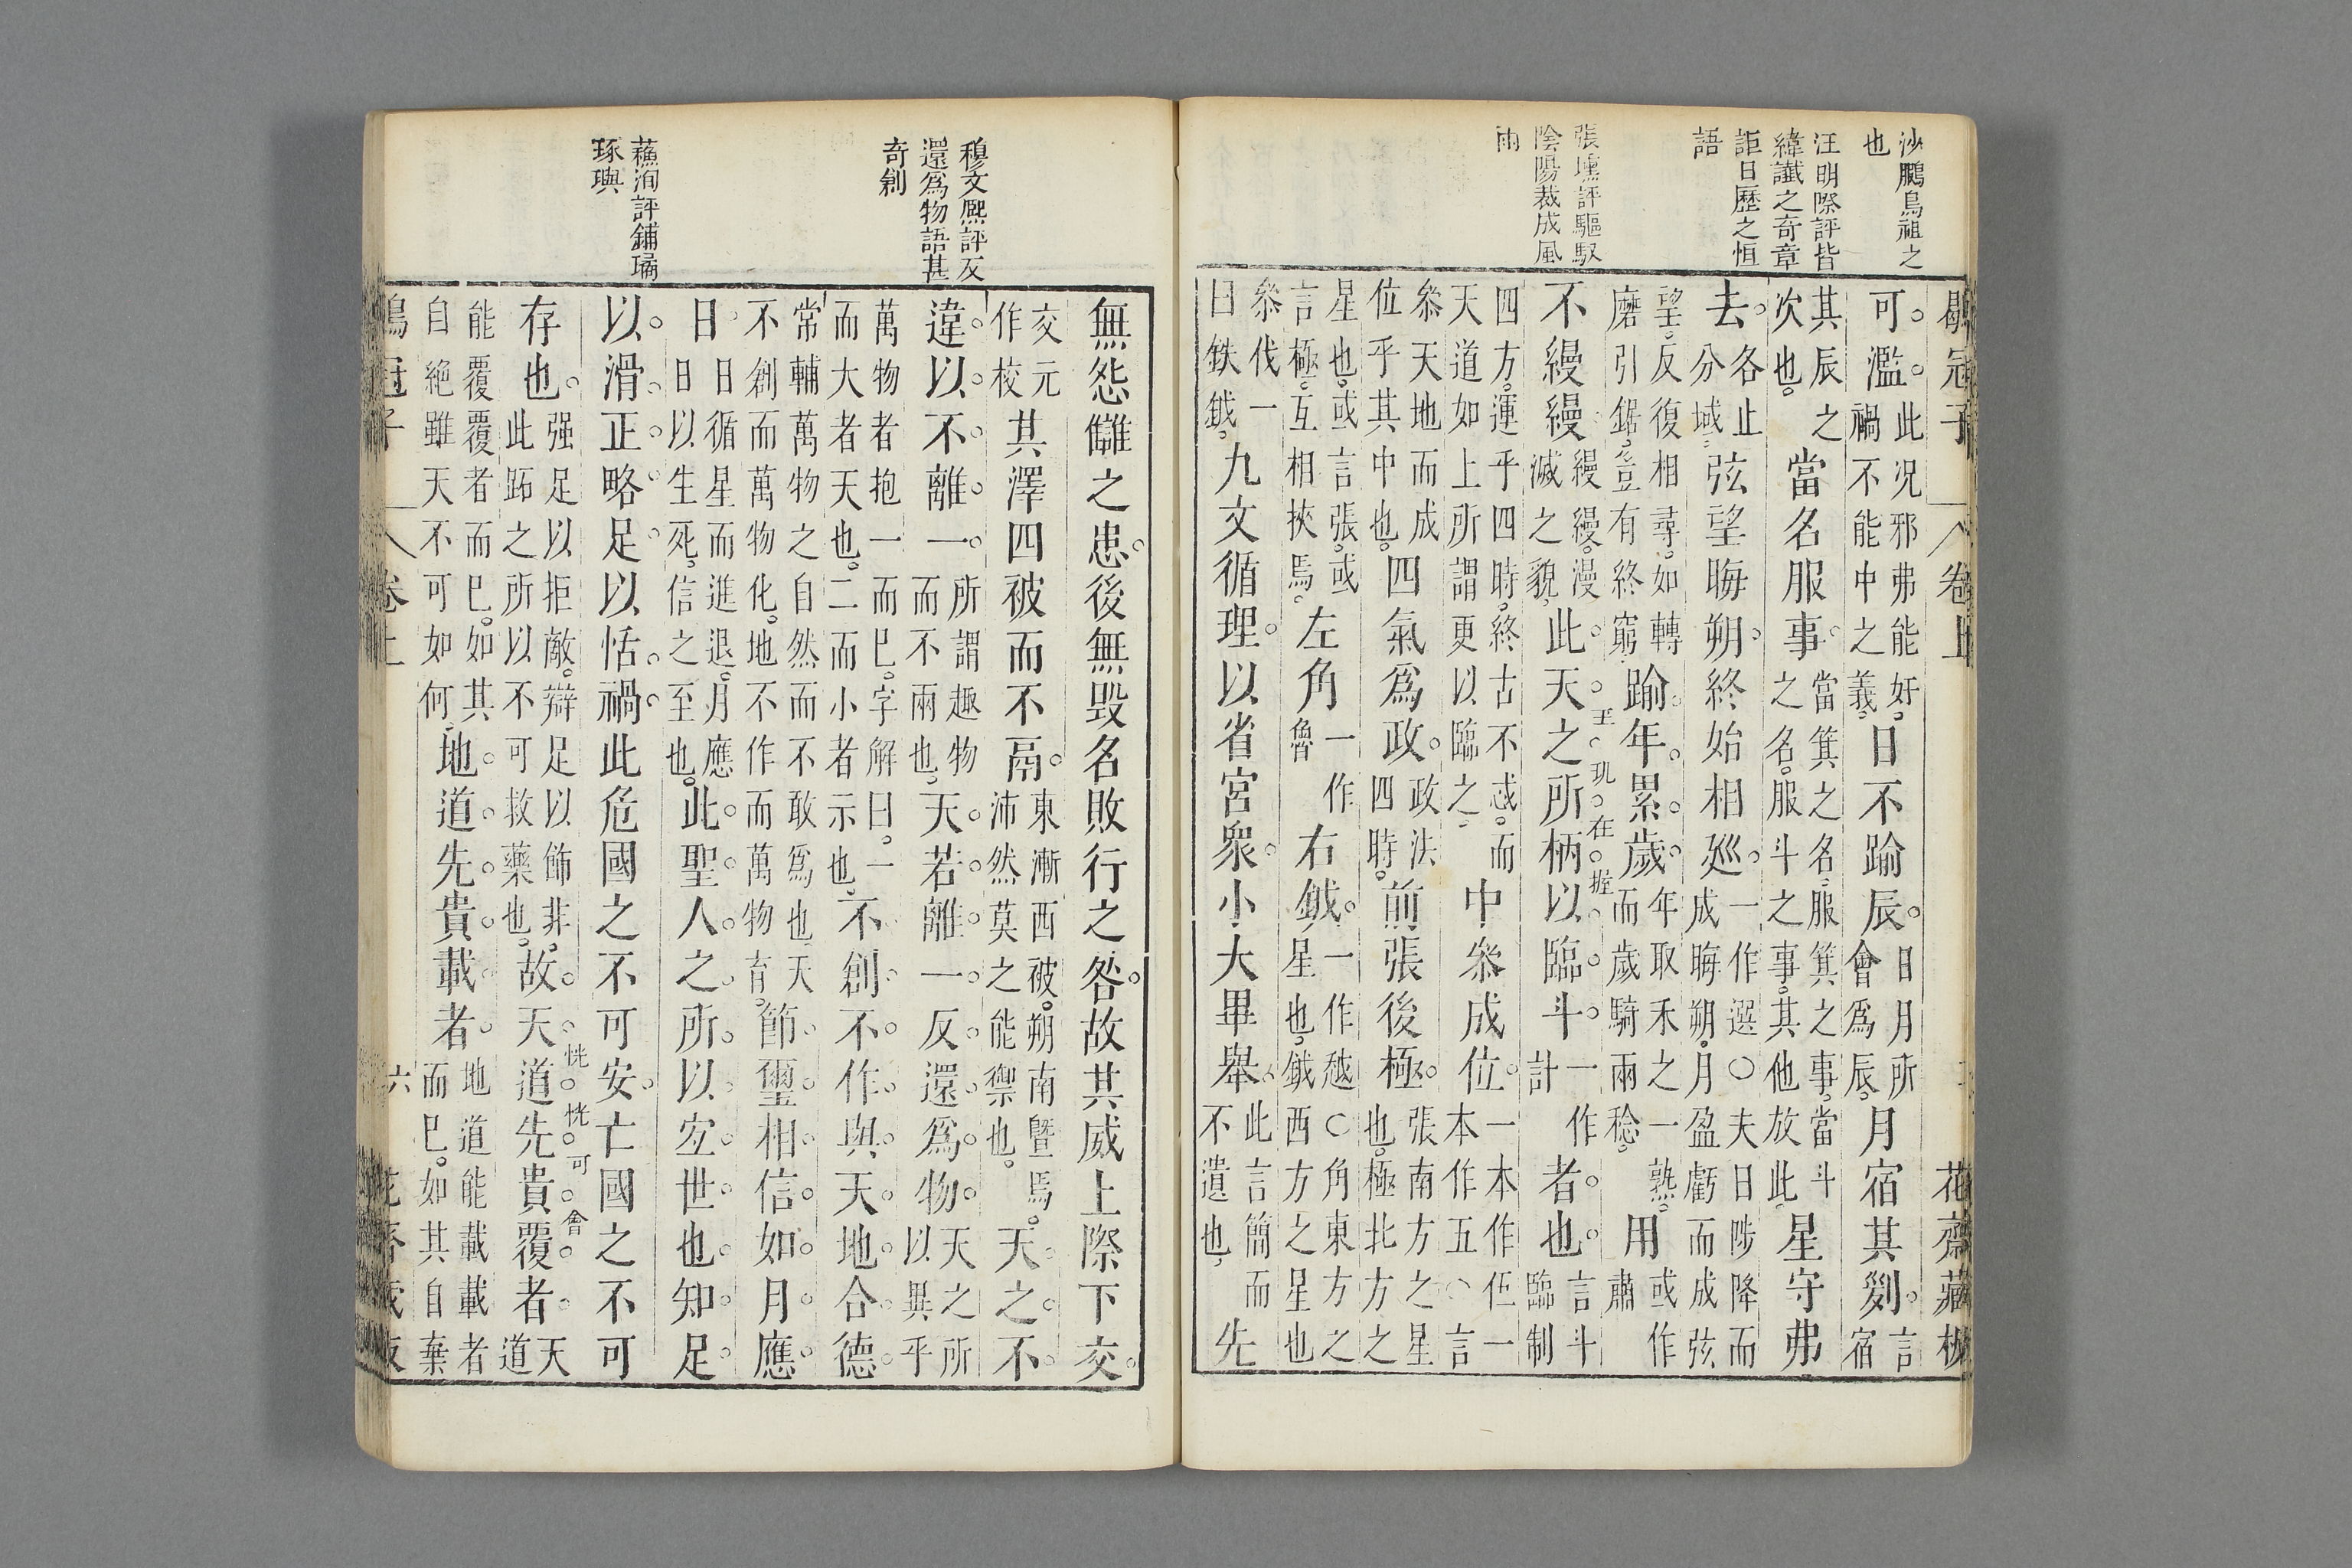 沙鵩鳥祖之
也
汪明際評皆
緯讖之奇章
詎日歷之恒
語
張㙜評驅馭
陰陽裁成風
雨
鶡冠子 卷上 花齋藏板
可濫此况邪弗能好禍不能中之義日不踰辰日月所會爲辰月宿其𠛱言宿
其辰之次也當名服事當箕之名服箕之事當斗之名服斗之事其他放此星守弗
去各止分域弦望晦朔終始相廵一作選〇夫日陟降而成晦朔月盈虧而成弦
望反復相尋如轉磨引鋸豈有終窮踰年累歲年取禾之一熟而歲騎兩稔用或作肅
不縵縵縵縵漫滅之貌此天之所柄以臨斗一作計者也言斗臨制
四方運乎四時終古不忒而天道如上所謂更以臨之中叅成位一本作伍一本作五〇言
叅天地而成位乎其中也四氣爲政政法四時前張後極張南方之星也極北方之
星也或言張或言極互相挾焉左角一作魯右鉞一作越〇角東方之星也鉞西方之星也
叅伐一曰鈇鉞九文循理以省宮衆小大畢舉此言簡而不遺也先
王璣在握
穆文熈評反
還爲物語甚
奇創
蘓洵評鋪璚
琢璵
無怨讎之患後無毁名敗行之咎故其威上際下交
交元作校其澤四被而不鬲東漸西被朔南曁焉沛然莫之能禦也天之不
違以不離一所謂趣物而不兩也天若離一反還爲物天之所以異乎
萬物者抱一而已字解曰一而大者天也二而小者示也不創不作與天地合德
常輔萬物之自然而不敢爲也天不創而萬物化地不作而萬物育節璽相信如月應
日日循星而進退月應日以生死信之至也此聖人之所以宐世也知足
以滑正略足以恬禍此危國之不可安亡國之不可
存也强足以拒敵辯足以飾非此跖之所以不可救藥也故天道先貴覆者天道
恍恍可會
能覆覆者而已如其自絶雖天不可如何地道先貴載者地道能載載者而已如其自棄
鶡冠子 卷上 六 花齋藏板